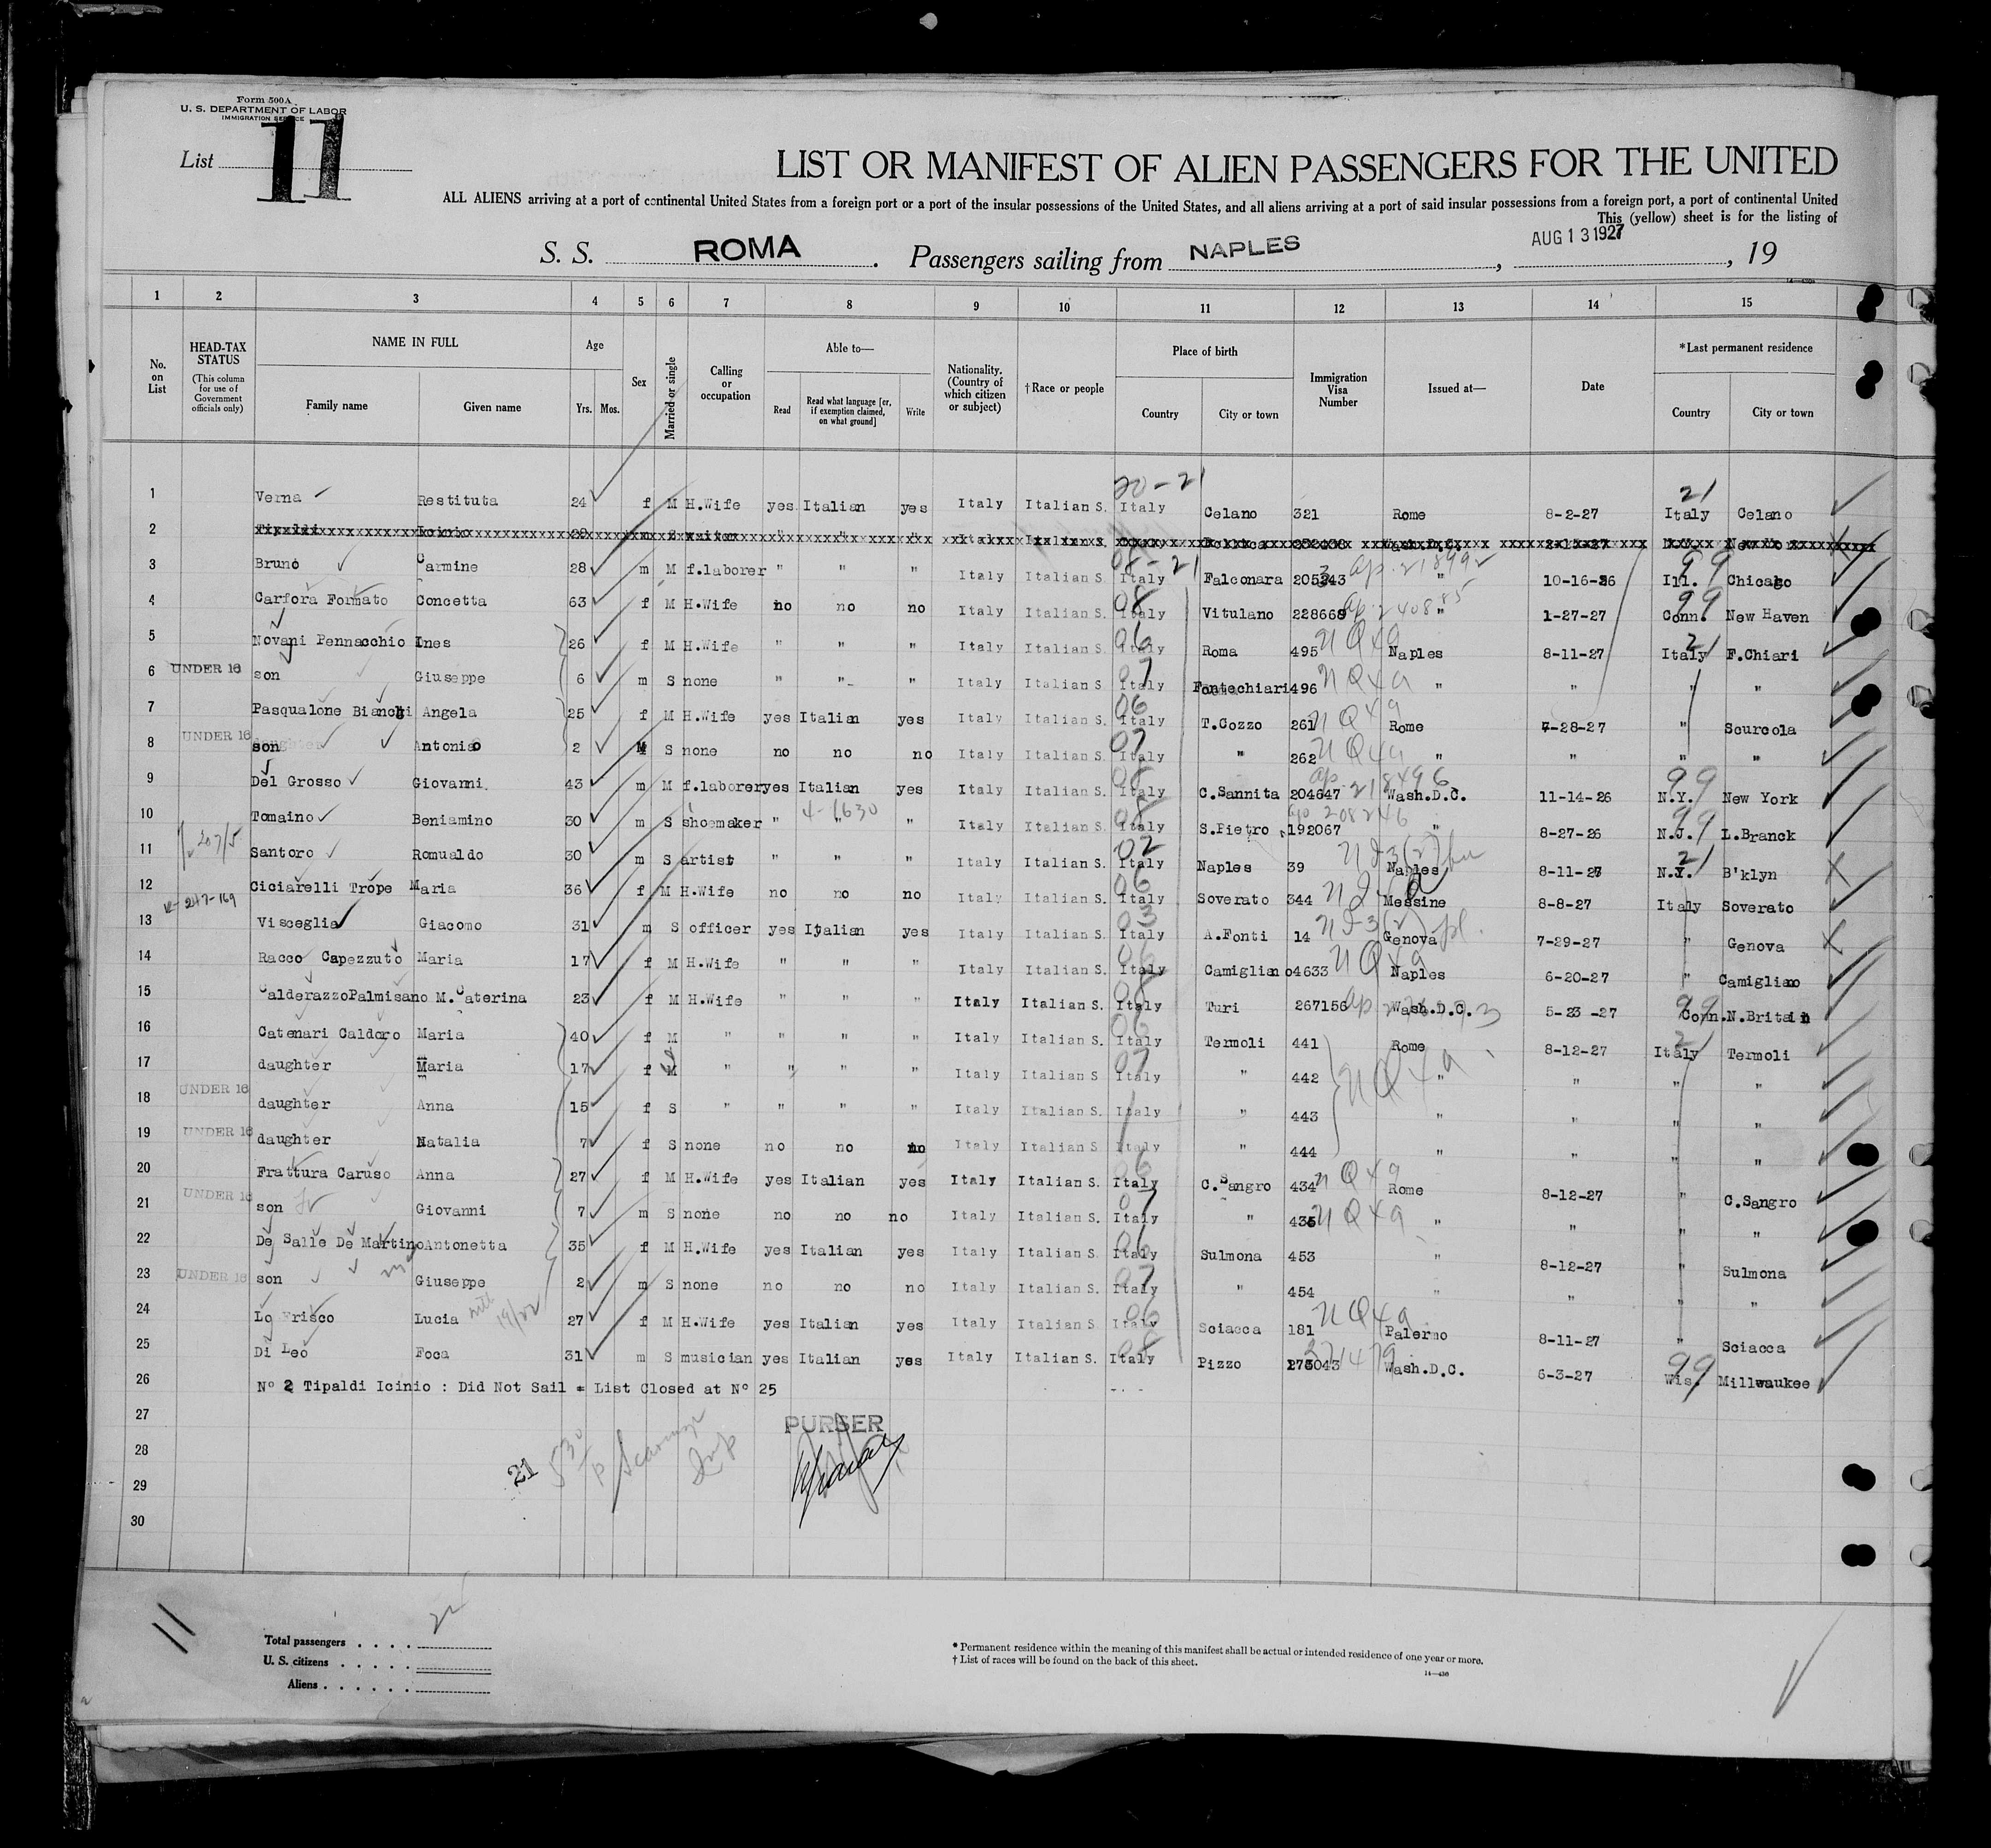 Form 500A
U. S. DEPARTMENT OF LABOR
IMMIGRATION SERVICE
List 11
LIST OR MANIFEST OF ALIEN PASSENGERS FOR THE UNITED
ALL ALIENS arriving at a port of continental United States from a foreign port or a port of the insular possessions of the United States, and all aliens arriving at a port of said insular possessions from a foreign port, a port of continental United
This (yellow) sheet is for the listing of
S. S. ROMA. Passengers sailing from NAPLES, AUG 13 1927, 19
1 2 3 4 5 6 7 8 9 10 11 12 13 14 15
No. on List HEAD-TAX STATUS (This column for use of Government officials only) NAME IN FULL Family name Given name Age Yrs. Mos. Sex Married or single Calling or occupation Able to— Read Read what language [or, if exemption claimed, on what ground] Write Nationality. (Country of which citizen or subject) †Race or people Place of birth Country City or town Immigration Visa Number Issued at— Date *Last permanent residence Country City or town
20-21 21
1 Verna Restituta 24 f M H.Wife yes Italian yes Italy Italian S. Italy Celano 321 Rome 8-2-27 Italy Celano
2 Tipaldi Icinio
3 Bruno Carmine 28 m M f.laborer " " " Italy Italian S. Italy Falconara 205343 " 10-16-26 Ill. Chicago
4 Carfora Formato Concetta 63 f M H.Wife no no no Italy Italian S. Italy Vitulano 228668 " 1-27-27 Conn. New Haven
5 Novani Pennacchio Ines 26 f M H.Wife " " " Italy Italian S. Italy Roma 495 Naples 8-11-27 Italy F.Chiari
6 UNDER 16 son Giuseppe 6 m S none " " " Italy Italian S. Italy Fontechiari 496 " " " "
7 Pasqualone Bianchi Angela 25 f M H.Wife yes Italian yes Italy Italian S. Italy T.Cozzo 261 Rome 7-28-27 " Scurcola
8 UNDER 16 son Antonio 2 M S none no no no Italy Italian S. Italy " 262 " " " "
9 Del Grosso Giovanni. 43 m M f.laborer yes Italian yes Italy Italian S. Italy C.Sannita 204647 Wash.D.C. 11-14-26 N.Y. New York
10 Tomaino Beniamino 30 m S shoemaker " 4-1630 " " Italy Italian S. Italy S.Pietro 192067 " 8-27-26 N.J. L.Branck
11 Santoro Romualdo 30 m S artist " " " Italy Italian S. Italy Naples 39 Naples 8-11-27 N.Y. B'klyn
12 Ciciarelli Trope Maria 36 f M H.Wife no no no Italy Italian S. Italy Soverato 344 Messine 8-8-27 Italy Soverato
13 Visceglia Giacomo 31 m S officer yes Italian yes Italy Italian S. Italy A.Fonti 14 Genova 7-29-27 " Genova
14 Racco Capezzuto Maria 17 f M H.Wife " " " Italy Italian S. Italy Camigliano 4633 Naples 6-20-27 " Camigliano
15 Calderazzo Palmisano M.Caterina 23 f M H.Wife " " " Italy Italian S. Italy Turi 267156 Wash.D.C. 5-23-27 Conn. N.Britain
16 Catenari Caldoro Maria 40 f M " " " " Italy Italian S. Italy Termoli 441 Rome 8-12-27 Italy Termoli
17 daughter Maria 17 f " " " " Italy Italian S Italy " 442 " " " "
18 UNDER 16 daughter Anna 15 f S " " " " Italy Italian S. Italy " 443 " " " "
19 UNDER 16 daughter Natalia 7 f S none no no no Italy Italian S Italy " 444 " " " "
20 Frattura Caruso Anna 27 f M H.Wife yes Italian yes Italy Italian S. Italy C.Sangro 434 Rome 8-12-27 " C.Sangro
21 UNDER 16 son Giovanni 7 m S none no no no Italy Italian S. Italy " 435 " " " "
22 De Salle De Martino Antonetta 35 f M H.Wife yes Italian yes Italy Italian S Italy Sulmona 453 " 8-12-27 " Sulmona
23 UNDER 16 son Giuseppe 2 m S none no no no Italy Italian S. Italy " 454 " " " "
24 Lo Frisco Lucia 27 f M H.Wife yes Italian yes Italy Italian S Italy Sciacca 181 Palermo 8-11-27 " Sciacca
25 Di Leo Foca 31 m S musician yes Italian yes Italy Italian S. Italy Pizzo Wash.D.C. 6-3-27 Wis. Millwaukee
26 Nº 2 Tipaldi Icinio : Did Not Sail = List Closed at Nº 25
27 PURSER
28
29 21
30
11
Total passengers . . . .
U. S. citizens . . . . .
Aliens . . . . . .
* Permanent residence within the meaning of this manifest shall be actual or intended residence of one year or more.
† List of races will be found on the back of this sheet.
14—430